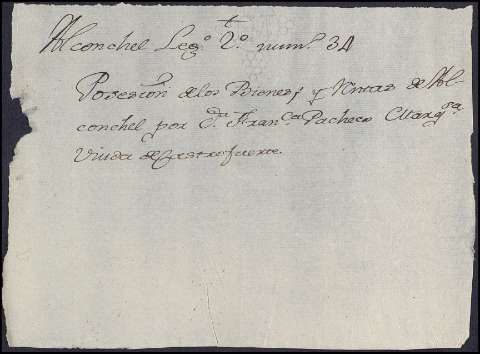 Alconchel Leg.º 2.º num.º 34
Posesion de los Bienes, y Rentas de Al-
conchel por D.ª Fran.ca Pacheco Marq.sa
Viuda de Castrofuerte.